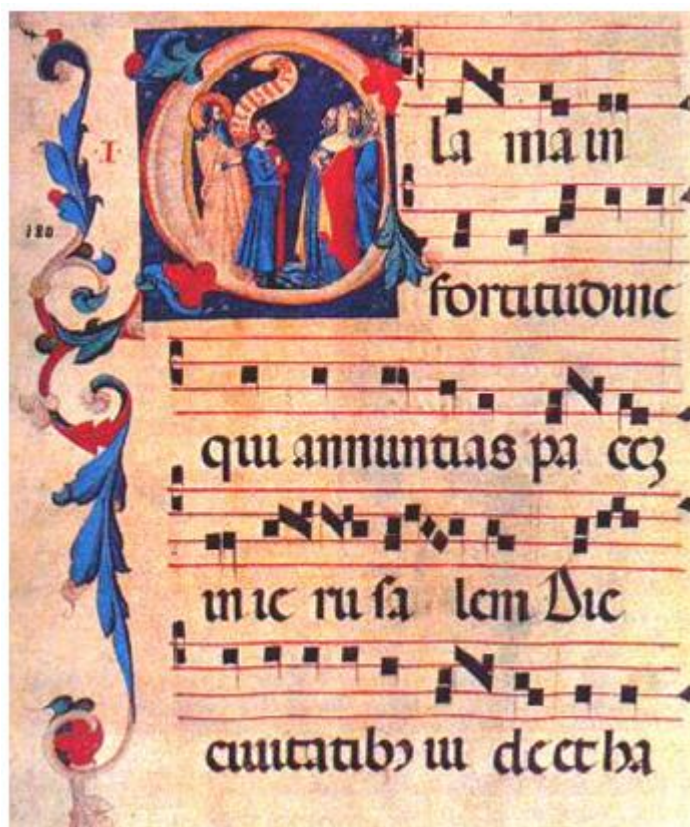 la ma in
·I·
180
fortitudine
qui annuntias pa cē
in ie ru sa lem Dic
ciuitatibꝰ iu de et ha